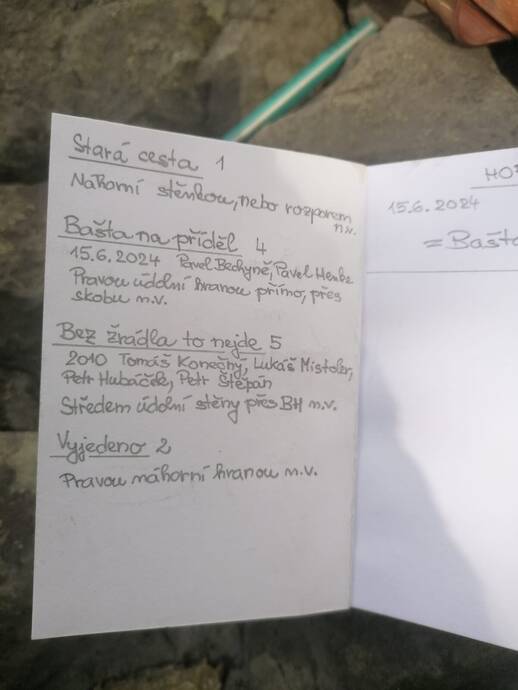 Stará cesta 1
Náhorní stěnkou, nebo rozporem
n.v.
Bašta na příděl 4
15.6.2024 Pavel Bechyně, Pavel Henke
Pravou údolní hranou přímo, přes
skobu n.v.
Bez žrádla to nejde 5
2010 Tomáš Konečný, Lukáš Mistoler,
Petr Hubáček, Petr Štěpán
Středem údolní stěny přes BH n.v.
Vyjedeno 2
Pravou náhorní hranou n.v.
15.6.2024